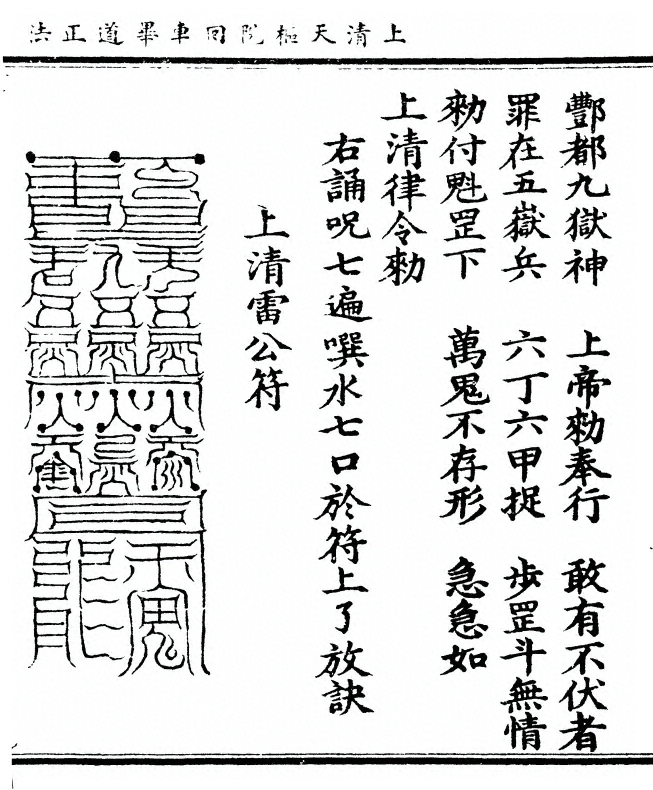 上清天樞院回車畢道正法
酆都九獄神　上帝勑奉行　敢有不伏者
罪在五嶽兵　六丁六甲捉　步罡斗無情
勑付魁罡下　萬鬼不存形　急急如
上清律令勑
右誦呪七遍噀水七口於符上了放訣
上清雷公符